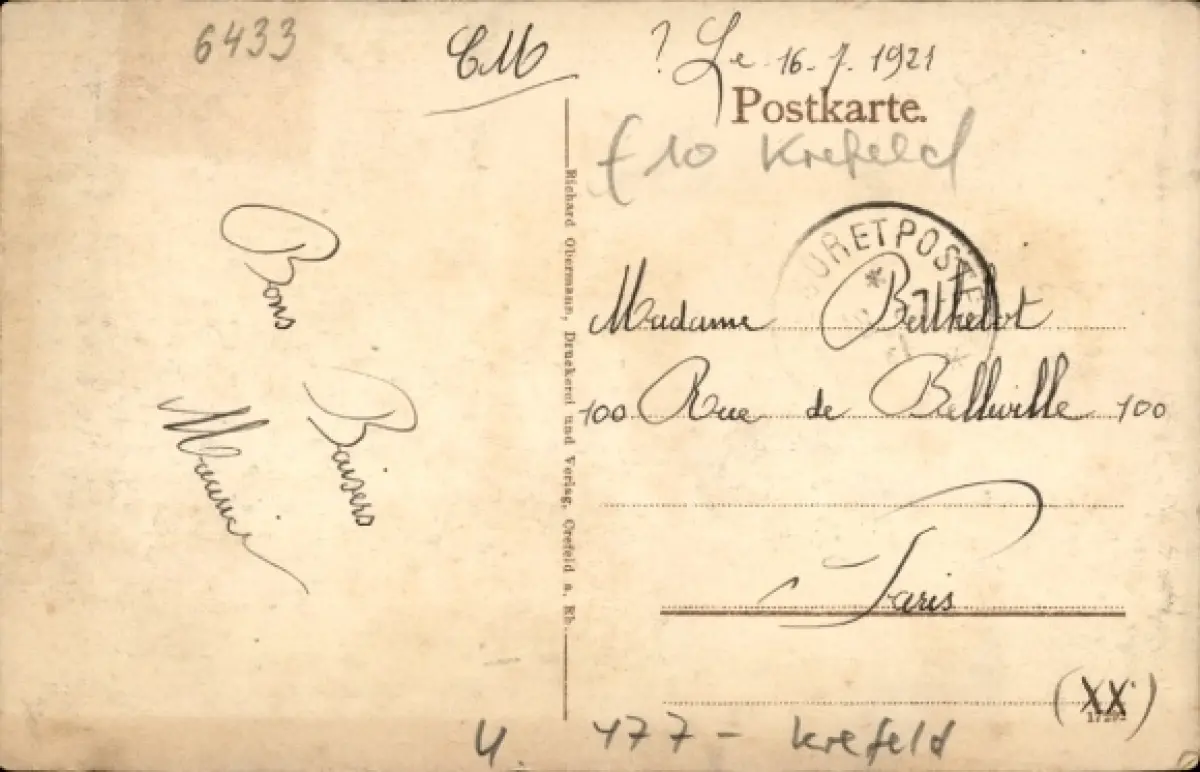 6433
CM
? Le 16.7.1921
Postkarte.
f10 Krefeld
Bons
Baisers
Richard Obermann, Druckerei und Verlag, Crefeld a. Rh.
URETPOSTE
Madame Berthelot
100 Rue de Belleville 100
Paris
(XX)
4.
477 - Krefeld